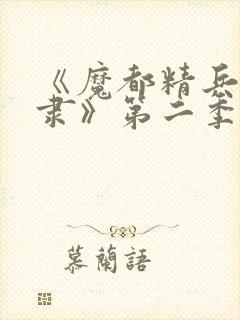 《魔都精兵
隶》第二季
慕蘭語